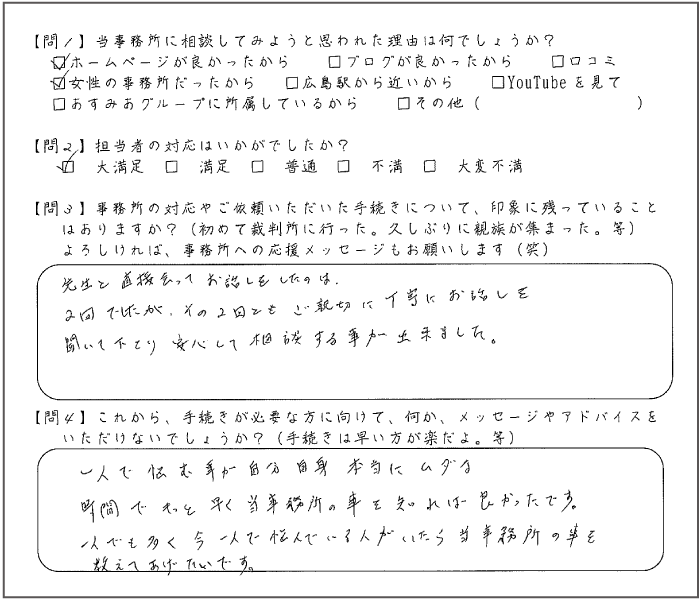 【問1】当事務所に相談してみようと思われた理由は何でしょうか?
☑ホームページが良かったから □ブログが良かったから □口コミ
☑女性の事務所だったから □広島駅から近いから □YouTubeを見て
□あすみあグループに所属しているから □その他( )
【問2】担当者の対応はいかがでしたか?
☑ 大満足 □ 満足 □ 普通 □ 不満 □ 大変不満
【問3】事務所の対応やご依頼いただいた手続きについて、印象に残っていること
はありますか?(初めて裁判所に行った。久しぶりに親族が集まった。等)
よろしければ、事務所への応援メッセージもお願いします(笑)
先生と直接会ってお話しをしたのは、
2回でしたが、その2回ともご親切に丁寧にお話しを
聞いて下さり安心して相談する事が出来ました。
【問4】これから、手続きが必要な方に向けて、何か、メッセージやアドバイスを
いただけないでしょうか?(手続きは早い方が楽だよ。等)
一人で悩む事が自分自身本当にムダな
時間でもっと早く当事務所の事を知れば良かったです。
一人でも多く今一人で悩んでいる人がいたら当事務所の事を
教えてあげたいです。